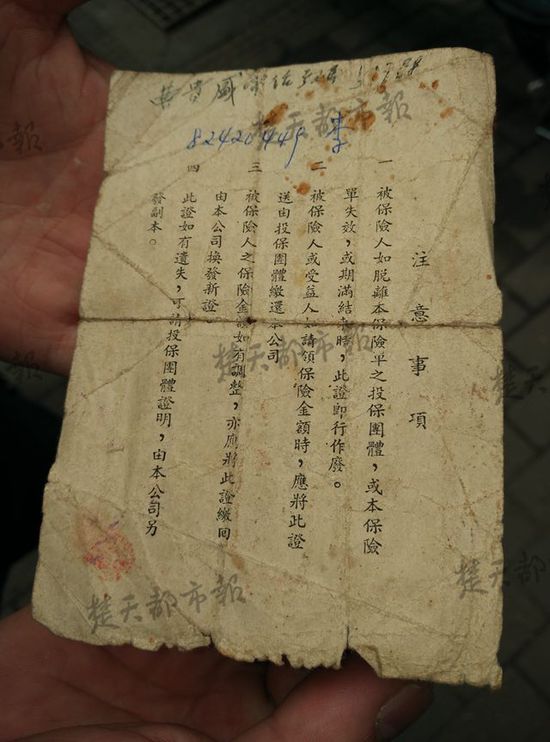 82420449 李
注意事項
一 被保險人如脫離本保險單之投保團體，或本保險
單失效，或期滿結時，此證即行作廢。
二 被保險人或受益人請領保險金額時，應將此證
送由投保團體繳還本公司
三 被保險人之保險金額如有調整，亦應將此證繳回
由本公司換發新證
四 此證如有遺失，可請投保團體證明，由本公司另
發副本。
楚天都市報
楚天都市報
楚天都市報
楚天都市報